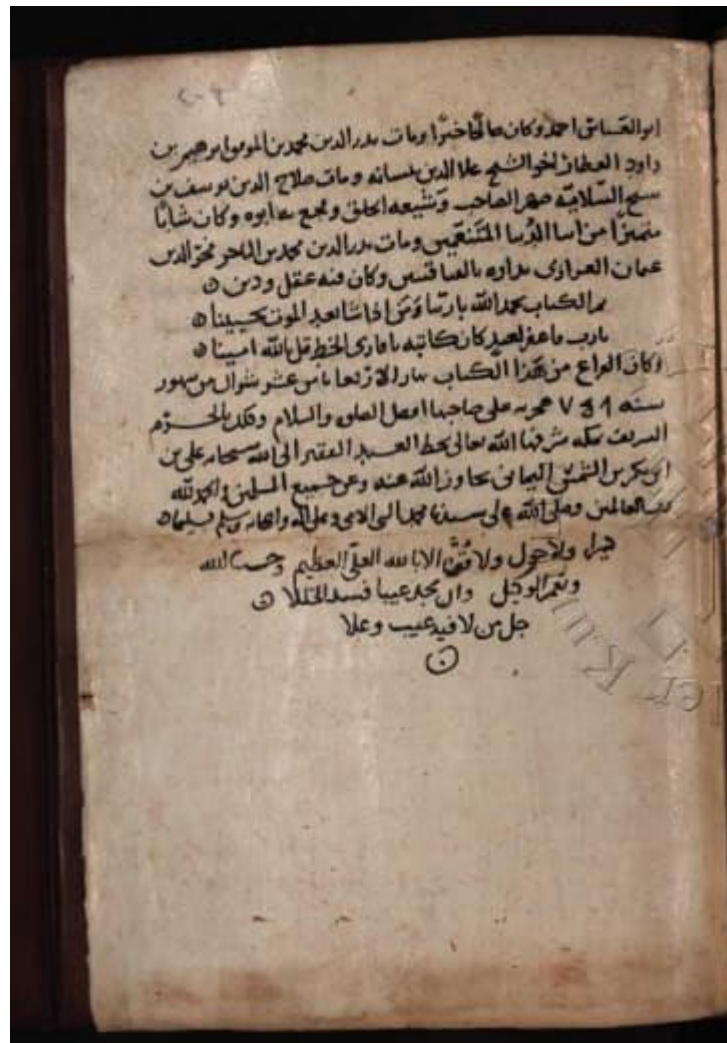 ابو العباس احمد وكان صالحا خيرا ومات بدر الدين محمد بن الموفق ابرهيم بن
داود العطار اخو الشيخ علا الدين ببستانه ومات صلاح الدين يوسف بن
شيخ السلامية صهر الصاحب وشيعه الخلق وفجع به ابوه وكان شابا
متميزا من ابنا الدنيا المتنعمين ومات بدر الدين محمد بن التاجر فخر الدين
عثمان بداره وكان فيه عقل ودين
تم الكتاب بحمد الله بارينا ومن اذا شا بعد الموت يحيينا
يارب فاغفر لعبد كان كاتبه يا قارئ الخط قل بالله امينا
وكان الفراغ من هذا الكتاب نهار الاربعا شوال من شهور
سنة هجرية على صاحبها افضل الصلوة والسلام وذلك بالحرم
الشريف بمكة شرفها الله تعالى بخط العبد الفقير الى الله سبحانه علي بن
ابي بكر بن اليماني تجاوز الله عنه وعن جميع المسلمين والحمد لله
رب العالمين وصلى الله على سيدنا محمد النبي الامي وعلى اله واصحابه وسلم تسليما
ولا حول ولا قوة الا بالله العلي العظيم وحسبنا الله
ونعم الوكيل وان تجد عيبا فسد الخللا
جل من لا فيه عيب وعلا